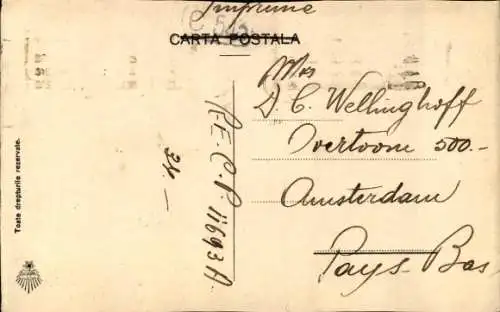 Imprimé
CARTA POSTALA
Mrs
D. C. Wellinghoff
Overtoom 500.-
Amsterdam
Pays-Bas
R.E.C.P. 11693A
Toate drepturile rezervate.